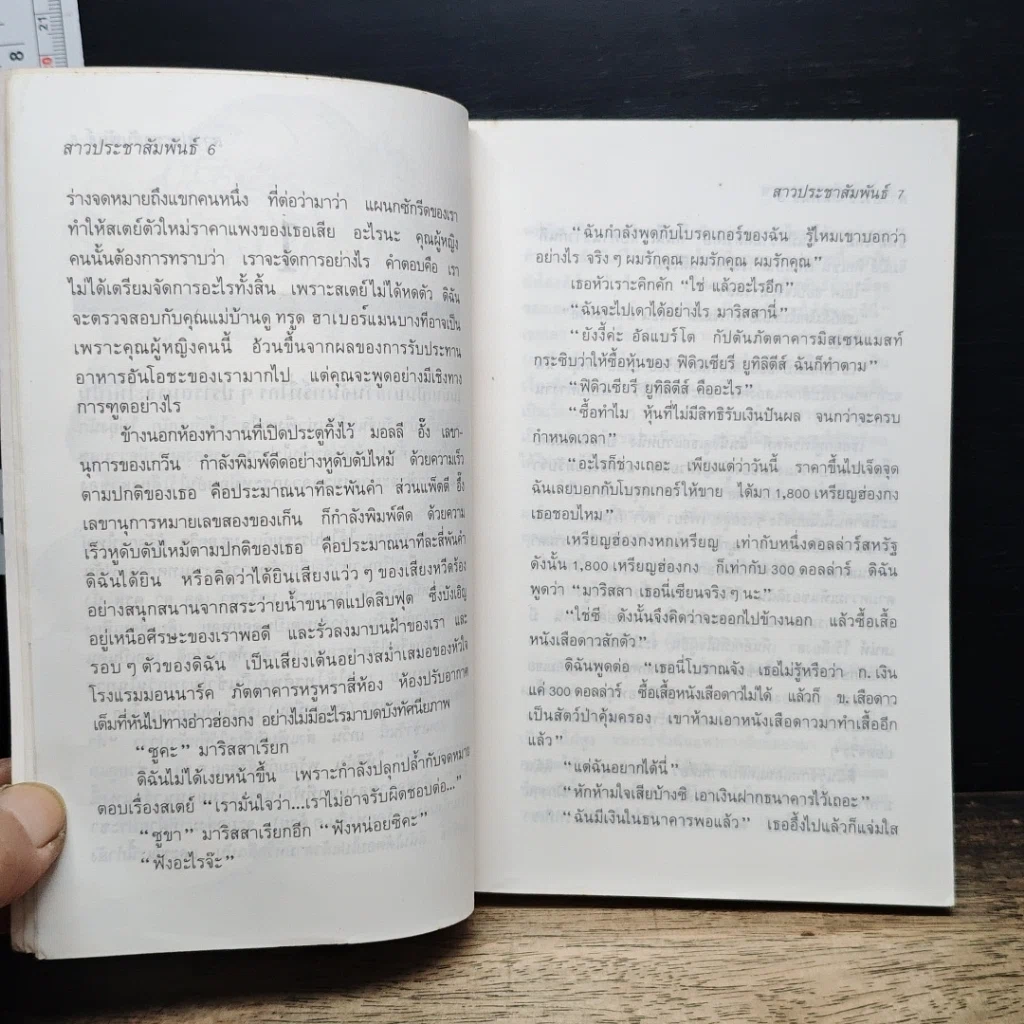 8
21
20
สาวประชาสัมพันธ์ 6
ร่างจดหมายถึงแขกคนหนึ่ง ที่ต่อว่ามาว่า แผนกซักรีดของเรา
ทำให้สเตย์ตัวใหม่ราคาแพงของเธอเสีย อะไรนะ คุณผู้หญิง
คนนั้นต้องการทราบว่า เราจะจัดการอย่างไร คำตอบคือ เรา
ไม่ได้เตรียมจัดการอะไรทั้งสิ้น เพราะสเตย์ไม่ได้หดตัว ดิฉัน
จะตรวจสอบกับคุณแม่บ้านดู ทรูด ฮาเบอร์แมนบางทีอาจเป็น
เพราะคุณผู้หญิงคนนี้ อ้วนขึ้นจากผลของการรับประทาน
อาหารอันโอชะของเรามากไป แต่คุณจะพูดอย่างมีเชิงทาง
การฑูตอย่างไร
ข้างนอกห้องทำงานที่เปิดประตูทิ้งไว้ มอลลี อั๊ง เลขา-
นุการของเกว็น กำลังพิมพ์ดีดอย่างหูดับตับไหม้ ด้วยความเร็ว
ตามปกติของเธอ คือประมาณนาทีละพันคำ ส่วนแพ็ตตี อึ้ง
เลขานุการหมายเลขสองของเก็น ก็กำลังพิมพ์ดีด ด้วยความ
เร็วหูดับตับไหม้ตามปกติของเธอ คือประมาณนาทีละสี่พันคำ
ดิฉันได้ยิน หรือคิดว่าได้ยินเสียงแว่ว ๆ ของเสียงหวีดร้อง
อย่างสนุกสนานจากสระว่ายน้ำขนาดแปดสิบฟุต ซึ่งบังเอิญ
อยู่เหนือศีรษะของเราพอดี และรั่วลงมาบนฝ้าของเรา และ
รอบ ๆ ตัวของดิฉัน เป็นเสียงเต้นอย่างสม่ำเสมอของหัวใจ
โรงแรมมอนนาร์ค ภัตตาคารหรูหราสี่ห้อง ห้องปรับอากาศ
เต็มที่หันไปทางอ่าวฮ่องกง อย่างไม่มีอะไรมาบดบังทัศนียภาพ
“ซูคะ” มาริสสาเรียก
ดิฉันไม่ได้เงยหน้าขึ้น เพราะกำลังปลุกปล้ำกับจดหมาย
ตอบเรื่องสเตย์ “เรามั่นใจว่า...เราไม่อาจรับผิดชอบต่อ...”
“ซูขา” มาริสสาเรียกอีก “ฟังหน่อยซิคะ”
“ฟังอะไรจ๊ะ”
สาวประชาสัมพันธ์ 7
“ฉันกำลังพูดกับโบรคเกอร์ของฉัน รู้ไหมเขาบอกว่า
อย่างไร จริง ๆ ผมรักคุณ ผมรักคุณ ผมรักคุณ”
เธอหัวเราะคิกคัก “ใช่ แล้วอะไรอีก”
“ฉันจะไปเดาได้อย่างไร มาริสสานี่”
“ยังงี้ค่ะ อัลแบร์โต กัปตันภัตตาคารมิสเซนแมสท์
กระซิบว่าให้ซื้อหุ้นของ ฟิดิวเซียรี ยูทิลิตีส์ ฉันก็ทำตาม”
“ฟิดิวเซียรี ยูทิลิตีส์ คืออะไร”
“ซื้อทำไม หุ้นที่ไม่มีสิทธิรับเงินปันผล จนกว่าจะครบ
กำหนดเวลา”
“อะไรก็ช่างเถอะ เพียงแต่ว่าวันนี้ ราคาขึ้นไปเจ็ดจุด
ฉันเลยบอกกับโบรกเกอร์ให้ขาย ได้มา 1,800 เหรียญฮ่องกง
เธอชอบไหม”
เหรียญฮ่องกงหกเหรียญ เท่ากับหนึ่งดอลล่าร์สหรัฐ
ดังนั้น 1,800 เหรียญฮ่องกง ก็เท่ากับ 300 ดอลล่าร์ ดิฉัน
พูดว่า “มาริสสา เธอนี่เซียนจริง ๆ นะ”
“ใช่ซี ดังนั้นจึงคิดว่าจะออกไปข้างนอก แล้วซื้อเสื้อ
หนังเสือดาวสักตัว”
ดิฉันพูดต่อ “เธอนี่โบราณจัง เธอไม่รู้หรือว่า ก. เงิน
แค่ 300 ดอลล่าร์ ซื้อเสื้อหนังเสือดาวไม่ได้ แล้วก็ ข. เสือดาว
เป็นสัตว์ป่าคุ้มครอง เขาห้ามเอาหนังเสือดาวมาทำเสื้ออีก
แล้ว”
“แต่ฉันอยากได้นี่”
“หักห้ามใจเสียบ้างซิ เอาเงินฝากธนาคารไว้เถอะ”
“ฉันมีเงินในธนาคารพอแล้ว” เธออึ้งไปแล้วก็แจ่มใส